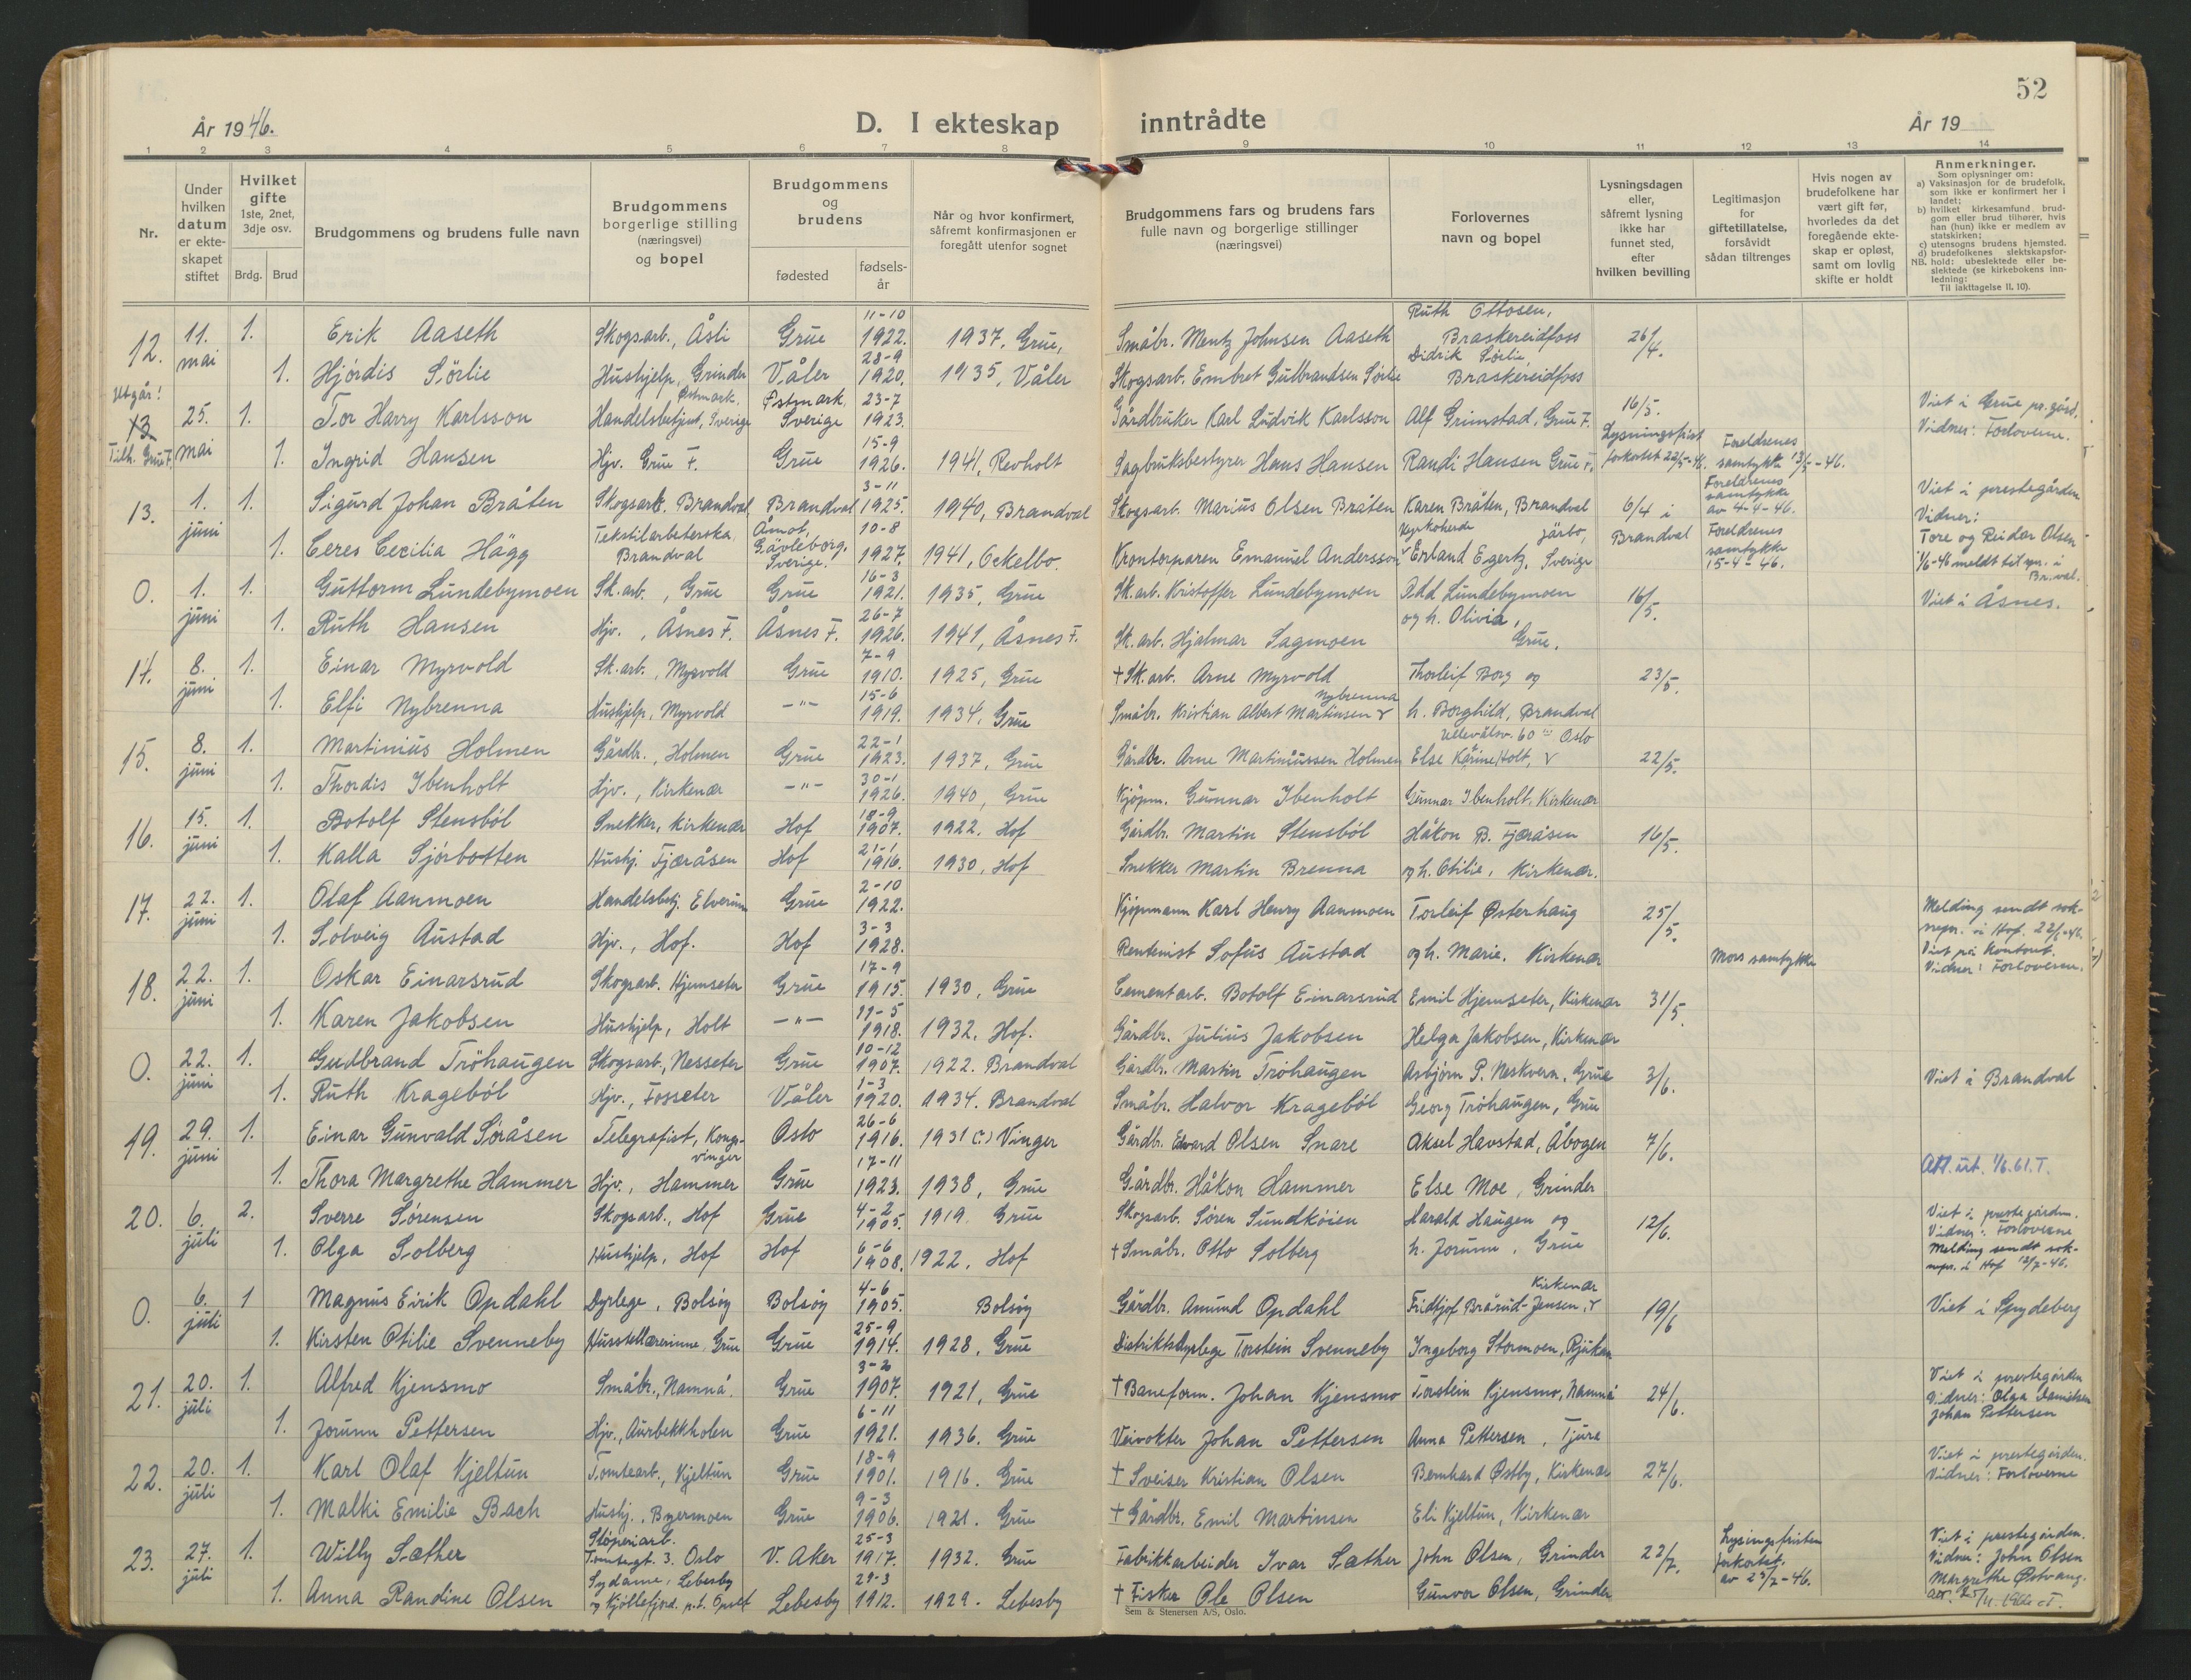 52
År 1946.
D. I ekteskap inntrådte
År 19
1 2 3 4 5 6 7 8 9 10 11 12 13 14
Nr.
Under hvilken datum er ekteskapet stiftet
Hvilket gifte 1ste, 2net, 3dje osv.
Brdg. Brud
Brudgommens og brudens fulle navn
Brudgommens borgerlige stilling (næringsvei) og bopel
Brudgommens og brudens
fødested
fødsels-år
Når og hvor konfirmert, såfremt konfirmasjonen er foregått utenfor sognet
Brudgommens fars og brudens fars fulle navn og borgerlige stillinger (næringsvei)
Forlovernes navn og bopel
Lysningsdagen eller, såfremt lysning ikke har funnet sted, efter hvilken bevilling
Legitimasjon for giftetillatelse, forsåvidt sådan tiltrenges
Hvis nogen av brudefolkene har vært gift før, hvorledes da det foregående ekteskap er opløst, samt om lovlig skifte er holdt
Anmerkninger.
Som oplysninger om:
a) Vaksinasjon for de brudefolk, som ikke er konfirmert her i landet;
b) hvilket kirkesamfund brudgom eller brud tilhører, hvis han (hun) ikke er medlem av statskirken;
c) utensogns brudens hjemsted.
d) brudefolkenes slektskapsforhold: ubeslektede eller beslektede (se kirkebokens innledning:
NB. Til iakttagelse II. 10).
12. 11. mai 1. Erik Aaseth Skogsarb., Åsli Grue 11-10 1922. 1937, Grue, Småbr. Mentz Johnsen Aaseth Ruth Ottosen, Braskereidfoss 26/4.
1. Hjördis Sörlie Hushjelp, Grinder Våler 28-9 1920. 1935, Våler Skogsarb. Embret Gulbrandsen Sörlie Didrik Sørlie, Braskereidfoss
Utgår! 13 Tilh. Grue F. 25. mai 1. Tor Harry Karlsson Handelsbetjent, Østmark, Sverige Østmark, Sverige 23-7 1923. Gårdbruker Karl Ludvik Karlsson Alf Grimstad, Grue F. 16/5. Viet i Grue pr.gård.
1. Ingrid Hansen Hjv. Grue F. Grue 15-9 1926. 1941, Revholt Sagbruksbestyrer Hans Hansen Randi Hansen Grue F. Lysningsfrist forkortet 22/5-46. Foreldrenes samtykke 13/5-46. Vidner: Forloverne.
13. 1. juni 1. Sigurd Johan Bråten Skogsarb. Brandval Brandval 3-11 1925. 1940, Brandval Skogsarb. Marius Olsen Bråten Karen Bråten, Brandval 6/4 i Brandval Foreldrenes samtykke av 4-4-46. Viet i prestegården Vidner:
1. Ceres Cecilia Hägg Tekstilarbeterska. Brandval Åmot, Gävleborg, Sverige. 10-8 1927. 1941, Ockelbo. Krontorparen Emanuel Andersson Kyrkoherde Erland Egertz, Järbo, Sverige Foreldrenes samtykke 15-4-46. Tore og Reidar Olsen 1/6-46 meldt til spr. i Br.val.
0. 1. juni 1. Guttorm Lundebymoen Sk.arb., Grue Grue 16-3 1921. 1935, Grue Sk.arb. Kristoffer Lundebymoen Odd Lundebymoen 16/5. Viet i Åsnes.
1. Ruth Hansen Hjv., Åsnes F. Åsnes F. 26-7 1926. 1941, Åsnes F. Sk.arb. Hjalmar Sagmoen og h. Olivia, Grue.
14. 8. juni 1. Einar Myrvold Sk.arb., Myrvold Grue 7-9 1910. 1925, Grue † Sk.arb. Arne Myrvold Thorleif Borg og 23/5.
1. Elfi Nybrenna Hushjelp, Myrvold -"- 15-6 1919. 1934, Grue Småbr. Kristian Albert Martinsen Nybrenna h. Borghild, Brandval
15. 8. juni 1. Martinius Holmen Gårdbr., Holmen Grue 22-1 1923. 1937, Grue Gårdbr. Arne Martiniussen Holmen Else Karine Holt, Ullevålsv. 60 Oslo 22/5.
1. Thordis Ibenholt Hjv., Kirkenær -"- 30-1 1926. 1940, Grue Kjöpm. Gunnar Ibenholt Gunnar Ibenholt, Kirkenær
16. 15. juni 1. Botolf Stensböl Snekker, Kirkenær Hof 18-9 1907. 1922. Hof Gårdbr. Martin Stensböl Håkon B. Fjæråsen 16/5.
1. Kalla Sjörbotten Hushj. Fjæråsen Hof 21-1 1916. 1930, Hof Snekker Martin Brenna og h. Otilie, Kirkenær.
17. 22. juni 1. Olaf Aanmoen Handelsbetj. Elverum Grue 2-10 1922. Kjøpmann Karl Henry Aanmoen Torleif Østerhaug 25/5. Melding sendt soknepr. i Hof. 22/6-46.
1. Solveig Austad Hjv., Hof. Hof 3-3 1928. Rentenist Sofus Austad og h. Marie. Kirkenær Mors samtykke Viet på kontoret. Vidner: Forloverne.
18. 22. juni 1. Oskar Einarsrud Skogsarb. Hjemseter Grue 17-9 1915. 1930, Grue Cementarb. Botolf Einarsrud Emil Hjemseter, Kirkenær 31/5.
1. Karen Jakobsen Hushjelp, Holt -"- 11-5 1918. 1932, Hof. Gårdbr. Julius Jakobsen Helga Jakobsen, Kirkenær
0. 22. juni 1. Gudbrand Tröhaugen Skogsarb., Nesseter Grue 10-12 1907. 1922. Brandval Gårdbr. Martin Tröhaugen Asbjörn P. Neskvern, Grue 3/6. Viet i Brandval
1. Ruth Krageböl Hjv., Fosseter Våler 1-3 1920. 1934. Brandval Småbr. Halvor Krageböl Georg Tröhaugen, Grue
19. 29. juni 1. Einar Gunvald Søråsen Telegrafist, Kongsvinger Oslo 26-6 1916. 1931 Vinger Gårdbr. Edvard Olsen Snare Aksel Havstad, Åbogen 7/6.
1. Thora Margrethe Hammer Hjv., Hammer Grue 17-11 1923. 1938, Grue Gårdbr. Håkon Hammer Else Moe, Grinder Att. ut. 1/6.61.T.
20. 6. juli 2. Sverre Sørensen Skogsarb., Hof Grue 4-2 1905. 1919. Grue Skogsarb. Søren Sundköien Harald Haugen og 12/6. Viet i prestegården. Vidner: Forloverne
1. Olga Solberg Hushjelp, Hof Hof 6-6 1908. 1922. Hof † Småbr. Otto Solberg h. Jorunn, Grue Melding sendt soknepr. i Hof 12/7-46.
0. 6. juli 1 Magnus Eirik Opdahl Dyrlege, Bolsöy Bolsöy 4-6 1905. Bolsöy Gårdbr. Amund Opdahl Fridtjof Brårud-Jensen, Kirkenær 19/6 Viet i Spydeberg
1. Kirsten Otilie Svenneby Husstellærerinne, Grue Grue 25-9 1914. 1928, Grue Distriktsdyrlege Torstein Svenneby Ingeborg Stormoen, Rjukan
21. 20. juli 1. Alfred Kjensmo Småbr., Namnå. Grue 3-2 1907. 1921, Grue † Baneform. Johan Kjensmo Torstein Kjensmo, Namnå 24/6. Viet i prestegården Vidner: Olga Danielsen
1. Jorunn Pettersen Hjv., Aurbekkholen Grue 6-11 1921. 1936. Grue Veivokter Johan Pettersen Anna Pettersen, Tjura Johan Pettersen
22. 20. juli 1. Karl Olaf Kjeltun Tomtearb., Kjeltun Grue 18-9 1901. 1916. Grue † Sveiser Kristian Olsen Bernhard Østby, Kirkenær 27/6. Viet i prestegården. Vidner: Forloverne
1. Malki Emilie Bach Hushj., Byermoen Grue 9-3 1906. 1921. Grue † Gårdbr. Emil Martinsen Eli Kjeltun, Kirkenær
23. 27. juli 1. Willy Sæther Støperiarb. Tomtegt. 3. Oslo V. Aker 25-3 1917. 1932. Grue Fabrikkarbeider Ivar Sæther John Olsen, Grinder 22/7. Lysingsfristen forkortet. av 25/7-46. Viet i prestegården. Vidner: John Olsen
1. Anna Randine Olsen Sydame, Lebesby og Kjöllefjord. p.t. Lebesby 29-3 1912. 1929. Lebesby † Fisker Ole Olsen Gunvor Olsen, Grinder Margrethe Østvang.
Sem & Stenersen A/S, Oslo.